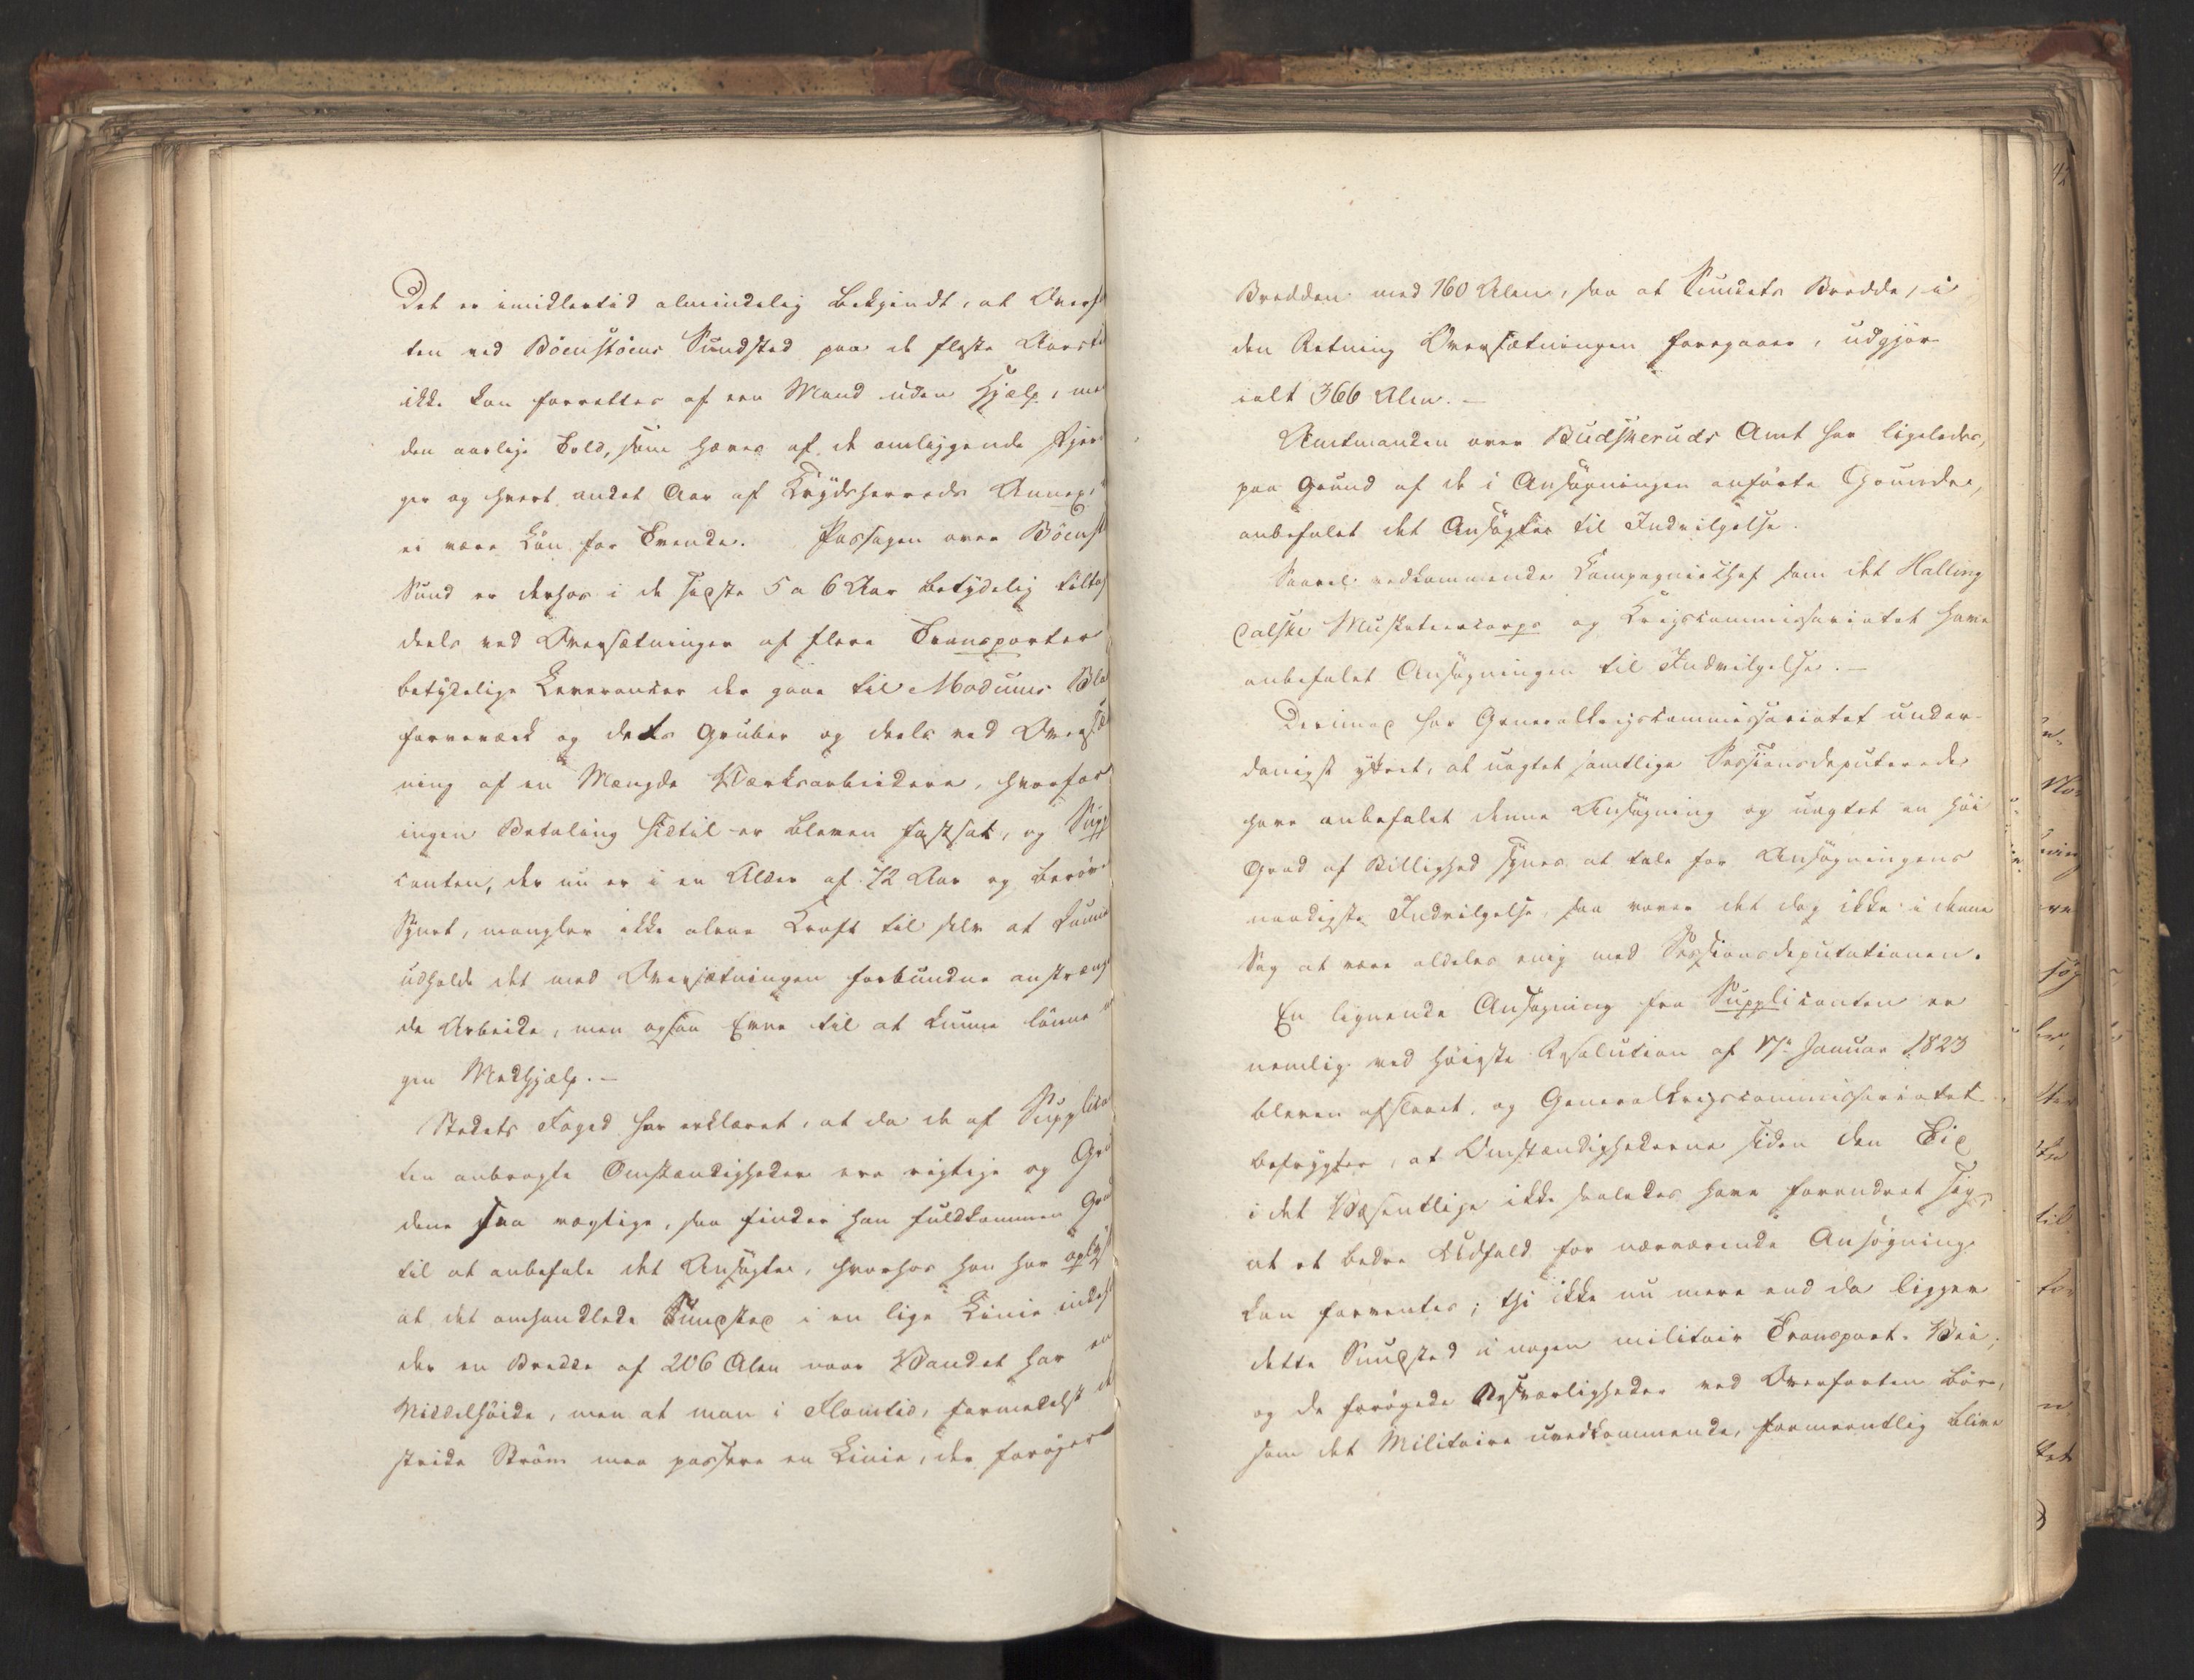 Det er imidlertid almindelig bekjendt, at Overf
ten ved Böenstöens Sundsted paa de fleste Aarsti
ikke kan forrettes af een Mand uden Hjælp, me
den aarlige Told, som hæves af de omliggende Bjer
ger og hvert andet Aar af Krydsherreds Annex,
ei være Lön for Tvende. Passagen over Böenst
Sund er derhos i de sidste 5 a 6 Aar betydelig tiltag
deels ved Oversætninger af flere Transporter
betydelige Leverancer der gaae til Modums Bla
farveværk og dets Gruber og deels ved Oversæt
ning af en Mængde Værksarbeidere, hvorfor
ingen Betaling hidtil er bleven fastsat, og Supp
canten, der nu er i en Alder af 72 Aar og beröve
Synet, mangler ikke alene Kraft til selv at kunne
udholde det med Oversætningen forbundne anstrænge
de Arbeide, men ogsaa Evne til at kunne lönne
gen Medhjælp. –
Stedets Foged har erklæret, at da de af Supplica
ten anbragte Omstændigheder ere rigtige og Gru
dene saa vægtige, saa finder han fuldkommen Gru
til at anbefale det Ansögte, hvorhos han har oplyst
at det omhandlede Sundsted i en lige Linie indeh
der en Bredde af 206 Alen naar Vandet har en
Middelhöide, men at man i Flomtid, formedelst de
stride Ström maa passere en Linie, der foröger
Bredden med 160 Alen, saa at Sundets Bredde, i
den Retning Oversætningen foregaaer, udgjör
ialt 366 Alen. –
Amtmanden over Budskeruds Amt har ligeledes,
paa Grund af de i Ansögningen anförte Grunde,
anbefalet det Ansögte til Indvilgelse.
Saavel vedkommende Compagniechef som det Halling
dalske Musketeercorps og Krigscommissariatet have
anbefalet Ansögningen til Indvilgelse. –
Derimod har Generalkrigscommissariatet under-
danigst yttret, at uagtet samtlige Sessionsdeputerede
have anbefalet denne Ansögning og uagtet en höi
Grad af Billighed synes at tale for Ansögningens
naadigste Indvilgelse, saa vover det dog ikke i denne
Sag at være aldeles enig med Sessionsdeputationen.
En lignende Ansögning fra Supplicanten er
nemlig ved höieste Resolution af 17de Januar 1823
bleven afslaaet, og Generalkrigscommissariatet
befrygter, at Omstændighederne siden den Tid
i det Væsentlige ikke saaledes have forandret sig,
at et bedre Udfald for nærværende Ansögning
kan forventes; thi ikke nu mere end da ligger
dette Sundsted i nogen militair Transport-Vei,
og de forögede Besværligheder ved Overfarten bör,
som det Militaire uvedkommende, formeentlig blive